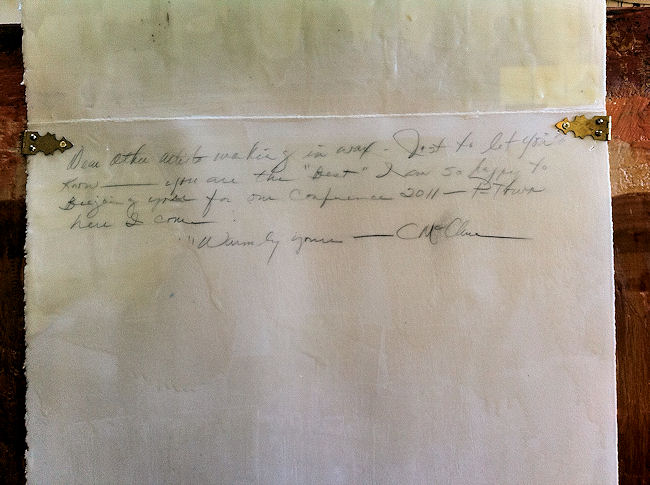 Dear other artists working in wax - Just to let you
Know — you are the "Best" I am so happy to
you for our Conference 2011 — P-Town
here I come
"Warmly yours — C McClure